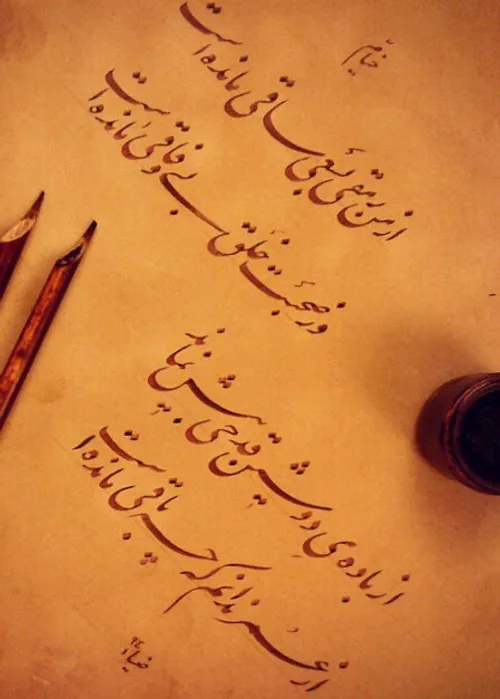 خیام
از من رمقی بسعی ساقی مانده است
وز صحبت خلق بی وفاقی مانده است
از باده‌ی دوشین قدحی بیش نماند
از عمر ندانم که چه باقی مانده است